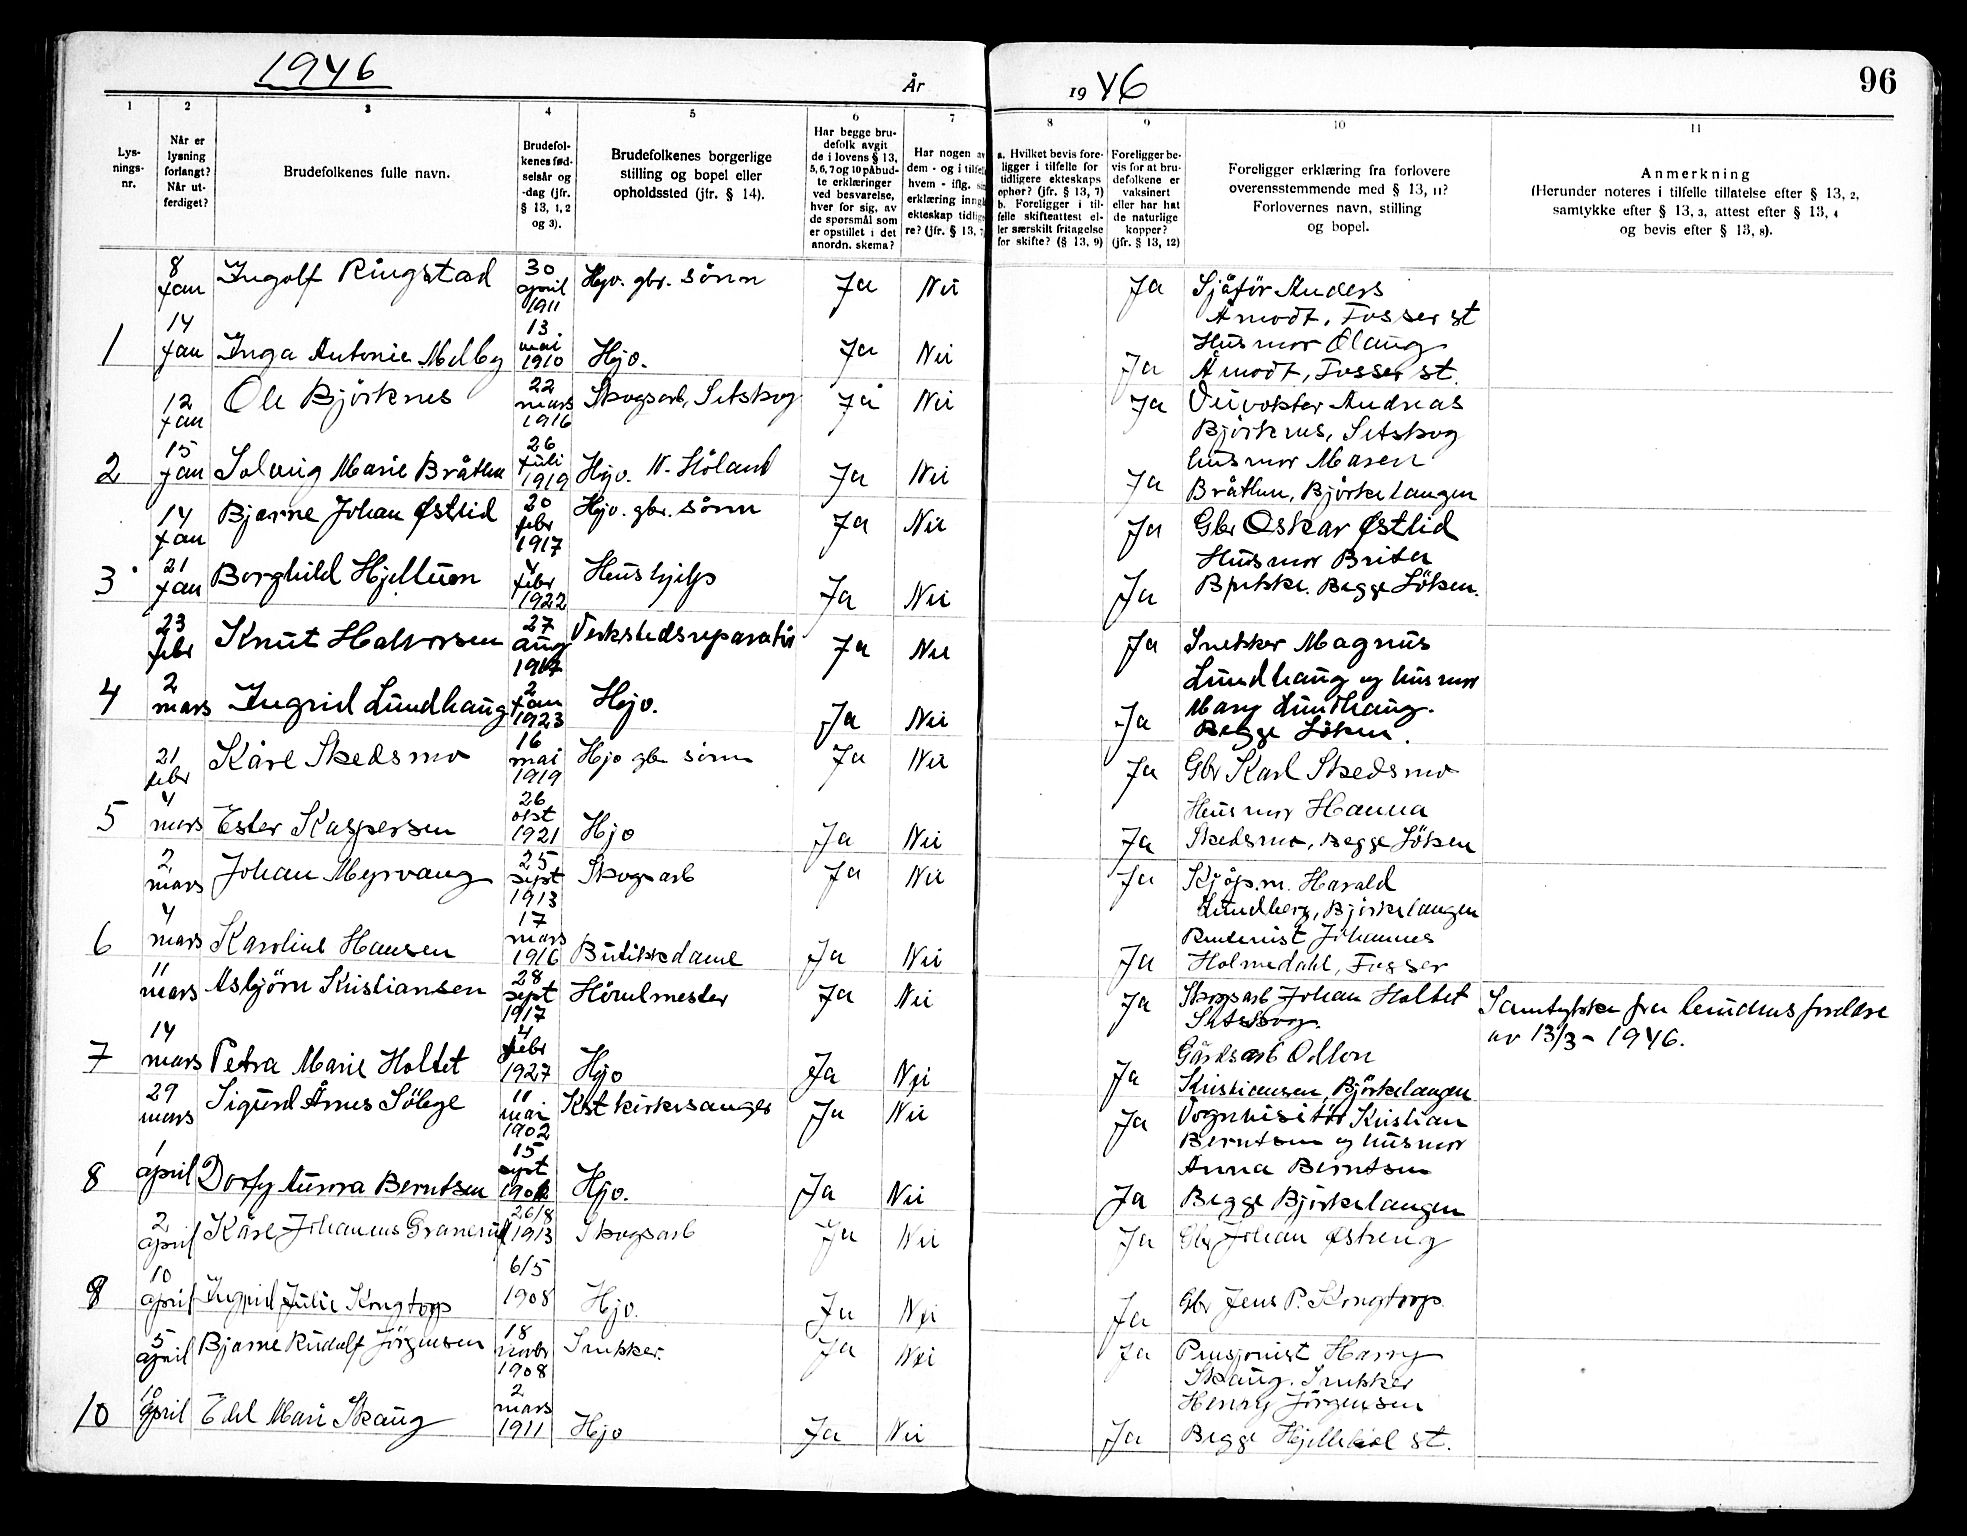 1946
År
1946
96
1
2
3
4
5
6
7
8
9
10
11
Lys-
nings-
nr.
Når er
lysning
forlangt?
Når ut-
ferdiget?
Brudefolkenes fulle navn.
Brudefol-
kenes fød-
selsår og
-dag (jfr.
§ 13, 1, 2
og 3).
Brudefolkenes borgerlige
stilling og bopel eller
opholdssted (jfr. § 14).
Har begge bru-
defolk avgit
de i lovens § 13,
5, 6, 7 og 10 påbud-
te erklæringer
ved besvarelse,
hver for sig, av
de spørsmål som
er opstillet i det
anordn. skema?
Har nogen av
dem - og i tilfelle
hvem - iflg.
erklæring inngå
ekteskap tidlige-
re? (jfr. § 13, 7
a. Hvilket bevis fore-
ligger i tilfelle for
tidligere ekteskaps
ophør? (jfr. § 13, 7)
b. Foreligger i til-
felle skifteattest el-
ler særskilt fritagelse
for skifte? (§ 13, 9)
Foreligger be-
vis for at bru-
defolkene er
vaksinert
eller har hat
de naturlige
kopper?
(jfr. § 13, 12)
Foreligger erklæring fra forlovere
overensstemmende med § 13, 11?
Forlovernes navn, stilling
og bopel.
Anmerkning
(Herunder noteres i tilfelle tillatelse efter § 13, 2,
samtykke efter § 13, 3, attest efter § 13, 4
og bevis efter § 13, 8).
8 Jan Ingolf Ringstad 30 april 1911 Hjv. gbr. sönn Ja Nei Ja Sjåför Anders
Åmodt, Fosser st
1 14 Jan Inga Antonie Melby 13. mai 1910 Hjv. Ja Nei Ja Husmor Olaug
Åmodt, Fosser st.
12 Jan Ole Björknes 22 mars 1916 Skogsarb, Setskog Ja Nei Ja Veivokter Andreas
Björknes, Setskog
2 15 Jan Solveig Marie Bråthen 26 Juli 1919 Hjv. N. Höland Ja Nei Ja husmor Maren
Bråthen, Björkelangen
14 Jan Bjarne Johan Østlid 20 febr 1917 Hjv. gbr. sönn Ja Nei Ja Gbr Oskar Østlid
3 21 Jan Borghild Hjelluen 4 febr 1922 Hushjelp Ja Nei Ja Husmor Briten
Brekke. Begge Löken.
23 febr Knut Halvorsen 27 aug 1917 Verkstedsreparatör Ja Nei Ja Snekker Magnus
Lundhaug og husmor
4 2 mars Ingrid Lundhaug 2 Jan 1923 Hjv. Ja Nei Ja Mary Lundhaug.
Begge Löken.
21 febr Kåre Skedsmo 16 mai 1919 Hjv gbr sönn Ja Nei Ja Gbr Karl Skedsmo
5 4 mars Ester Kaspersen 26 okt 1921 Hjv Ja Nei Ja Husmor Hanna
Skedsmo, Begge Löken
2 mars Johan Myrvang 25 sept 1913 Skogsarb Ja Nei Ja Kjöpm. Harald
Lundberg, Björkelangen
6 4 mars Karoline Hansen 17 mars 1916 Butikkdame Ja Nei Ja Johannes
Holmedahl, Fosser
11 mars Asbjörn Kristiansen 28 sept 1917 Ja Nei Ja Skogsarb Johan Holtet
Setskog.
Samtykke fra brudens foreldre
av 13/3 - 1946.
7 14 mars Petra Marie Holtet 4 febr 1927 Hjv Ja Nei Ja Gårdsarb Odlon
Kristiansen, Björkelangen
29 mars Sigurd Årnes Sölege 11 mai 1902 Kst kirkesanger Ja Nei Ja Vognvisitör Kristian
Berntsen og husmor
8 1 april Dorfy Aurora Berntsen 15 sept Hjv. Ja Nei Ja Anna Berntsen
Begge Björkelangen
2 april Kåre Johannes Granerud 26/8 1913 Skogsarb Ja Nei Ja Gbr Johan Østreng
9 10 april Ingrid Julie Kongtorp 6/5 1908 Hjv. Ja Nei Ja Gbr Jens P. Kongtorp.
5 april Bjarne Rudolf Jörgensen 18 novbr 1908 Snekker. Ja Nei Ja Pensjonist Harry
Skaug. Snekker
10 10 april Edel Mari Skaug 2 mars 1911 Hjv Ja Nei Ja Henry Jörgensen
Begge Hjelleböl st.